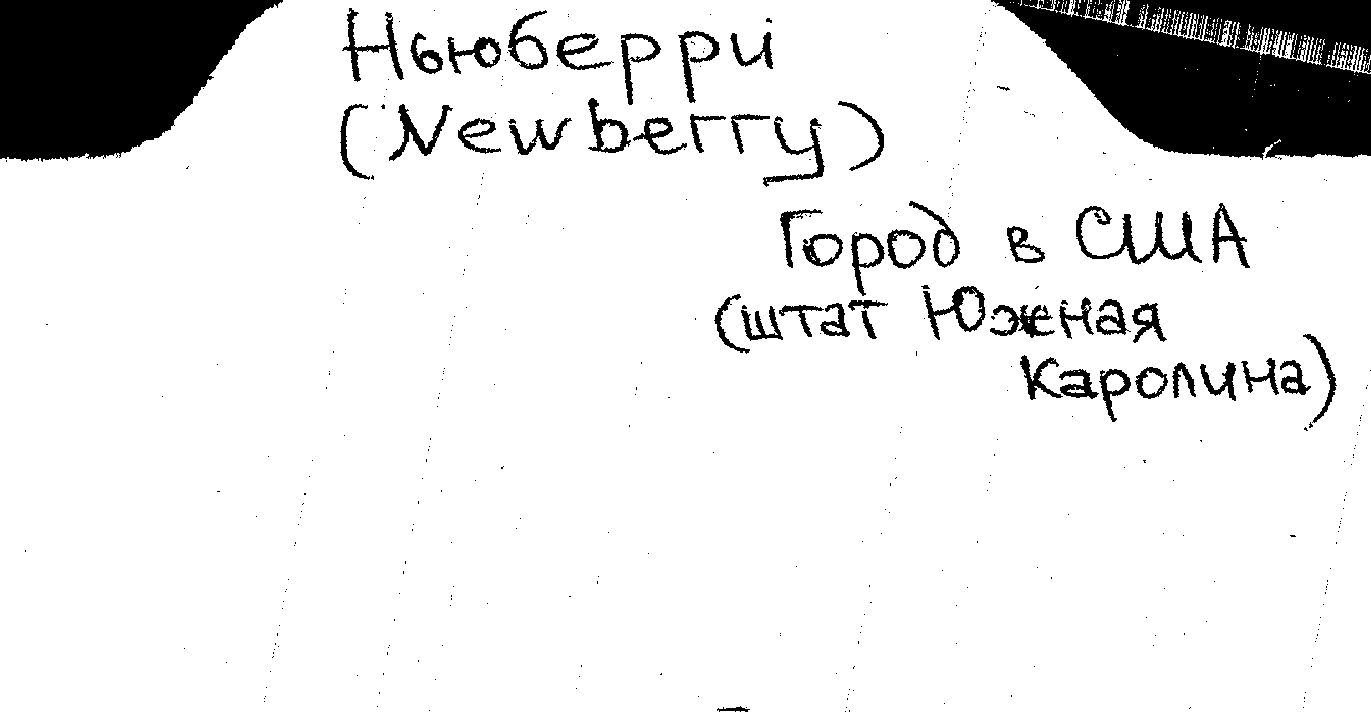 Ньюберри
(Newberry)
Город в США
(штат Южная
Каролина)